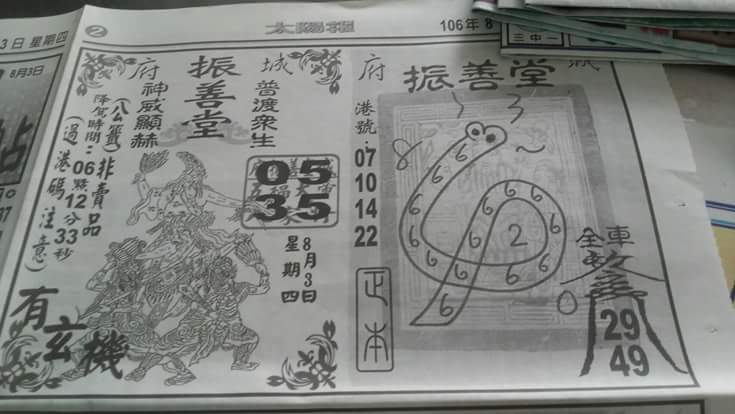 3日 星期四
8月3日
2
太陽報
106年8
三中一
府城
振善堂
神威顯赫
普渡眾生
(公籤)非賣品
降駕時間：06點12分33秒
(過港碼注意)
05
35
8月3日
星期四
有玄機
府
振善堂
港號：
07
10
14
22
正本
8
3
6
6
6
6
6
6
6
6
6
6
6
6
2
0
全車
29
49